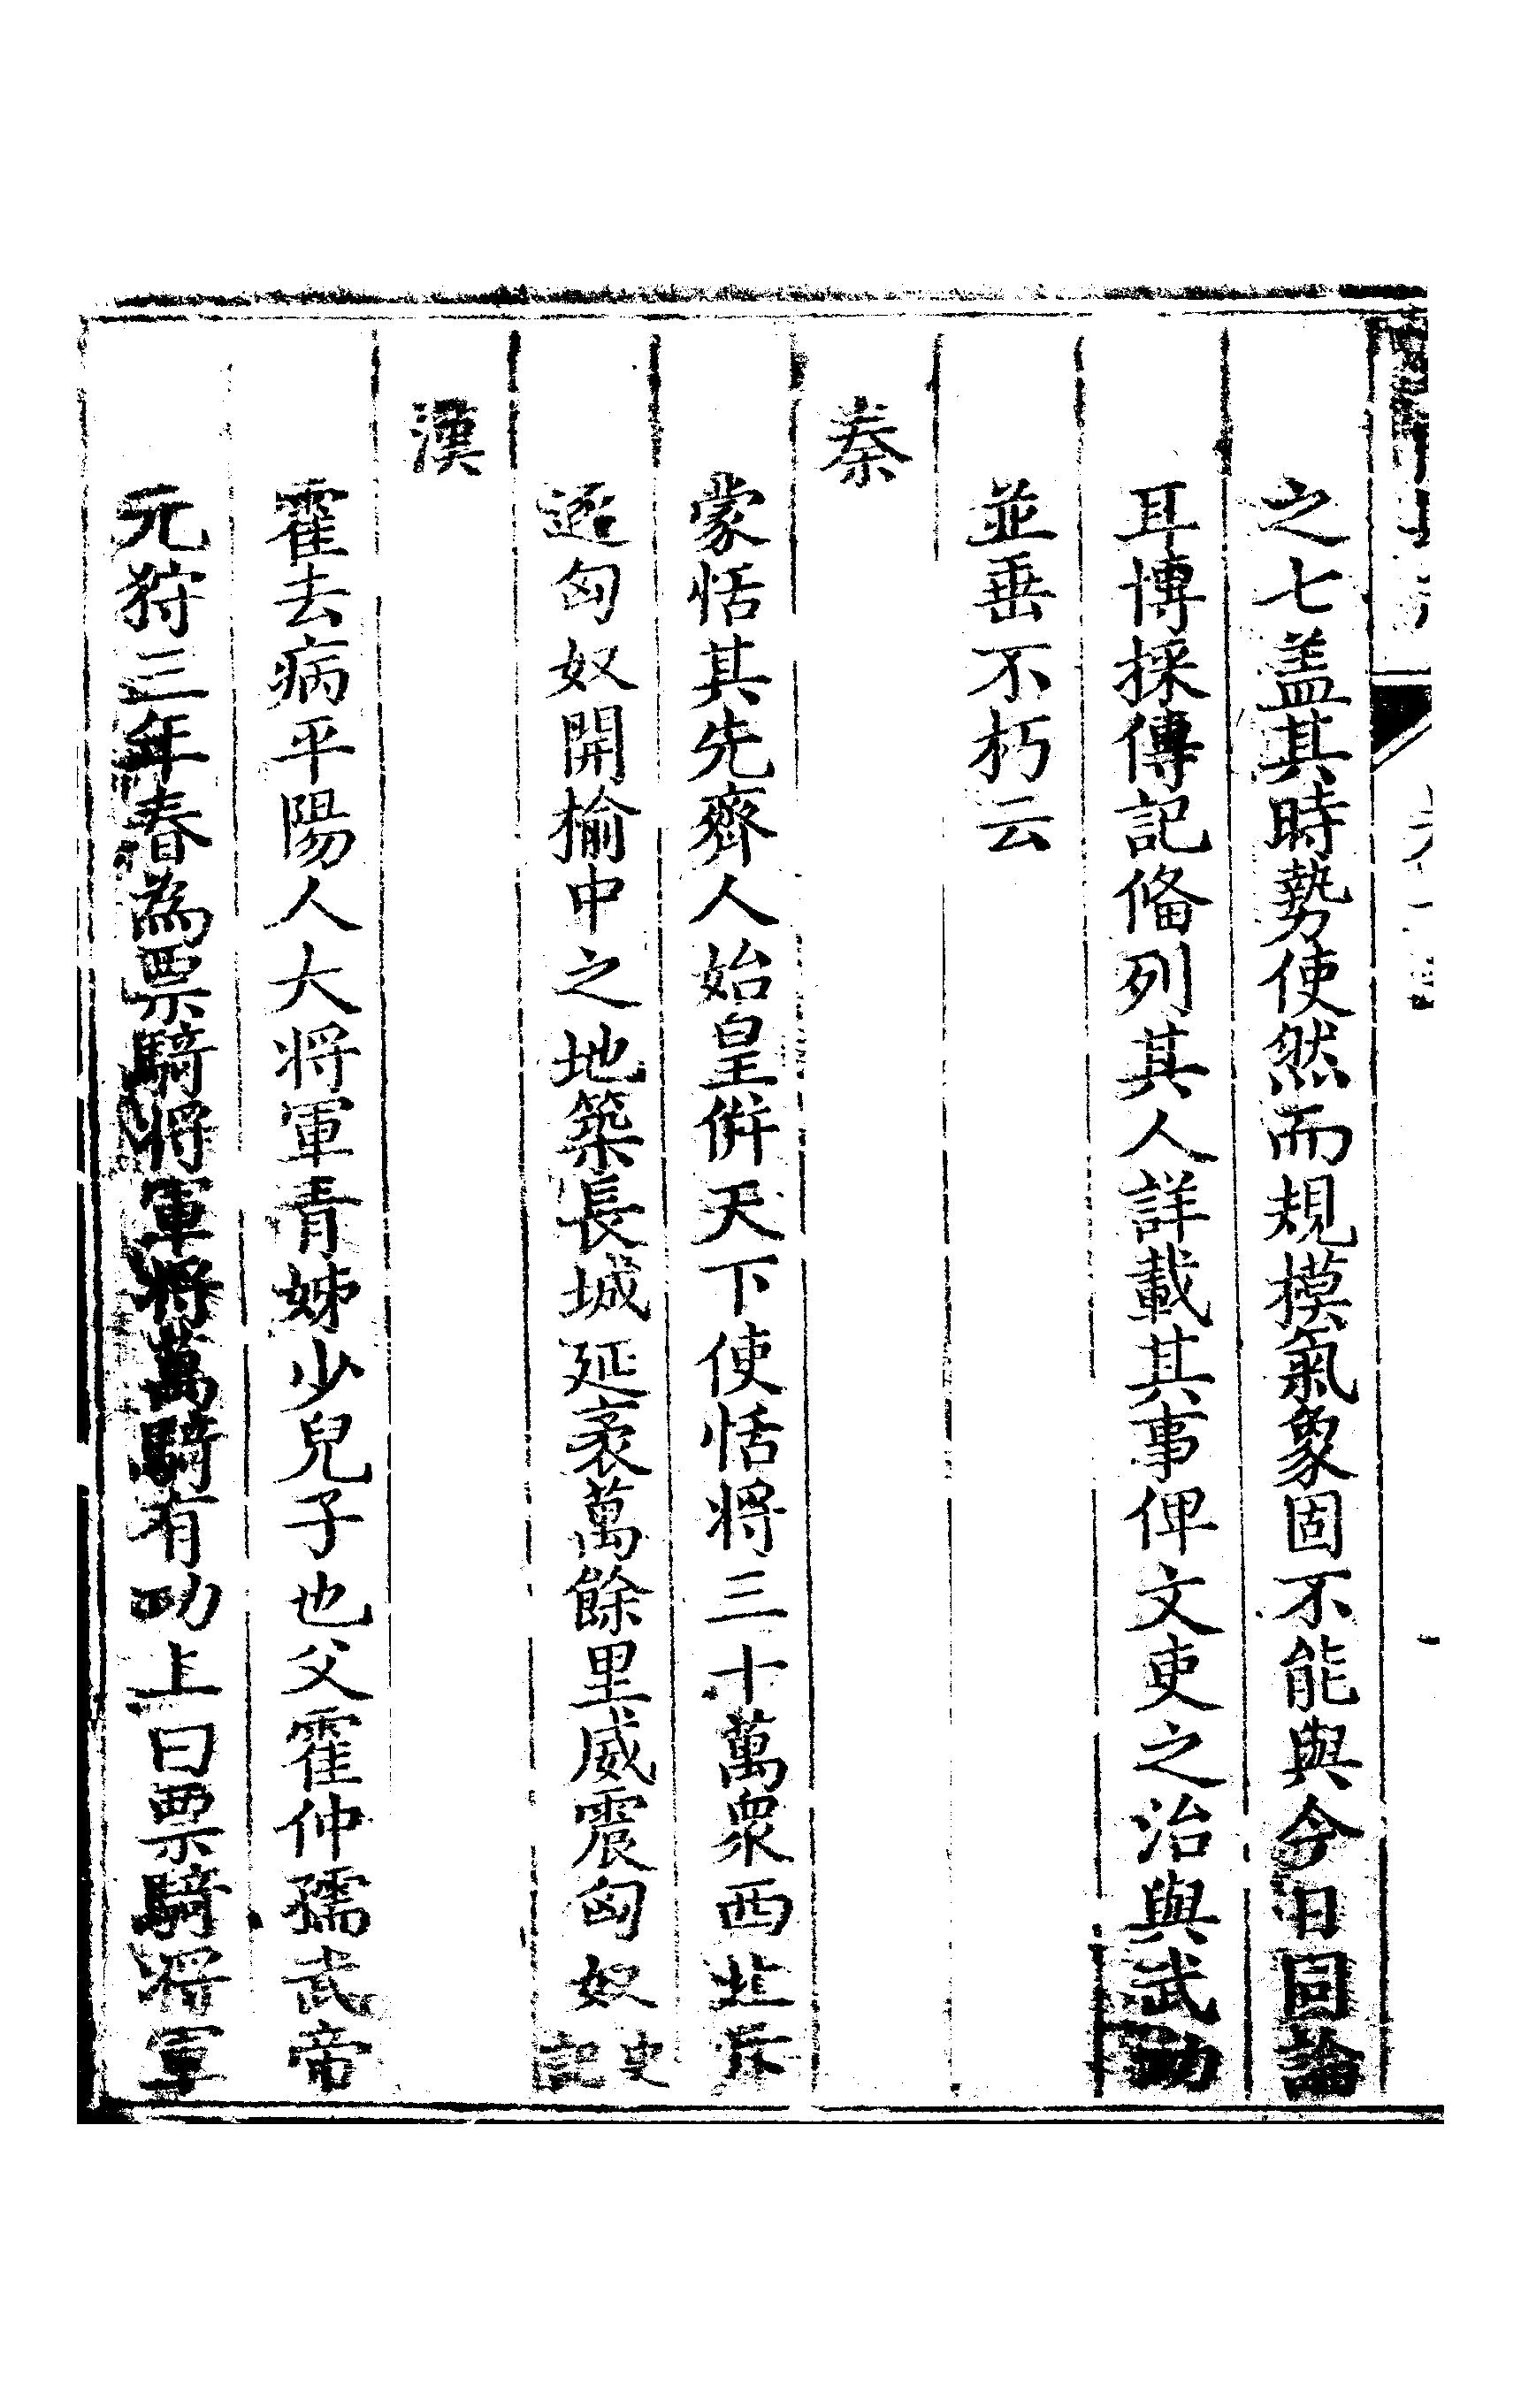 之七盖其時勢使然而規模氣象固不能與今日同論
耳博採傳記俻列其人詳載其事俾文吏之治與武功
並垂不朽云
秦
蒙恬其先齊人始皇併天下使恬將三十萬衆西北斥
逐匈奴開榆中之地築長城延袤萬餘里威震匈奴史記
漢
霍去病平陽人大将軍青姊少兒子也父霍仲孺武帝
元狩三年春為票騎将軍将萬騎有功上曰票騎将軍